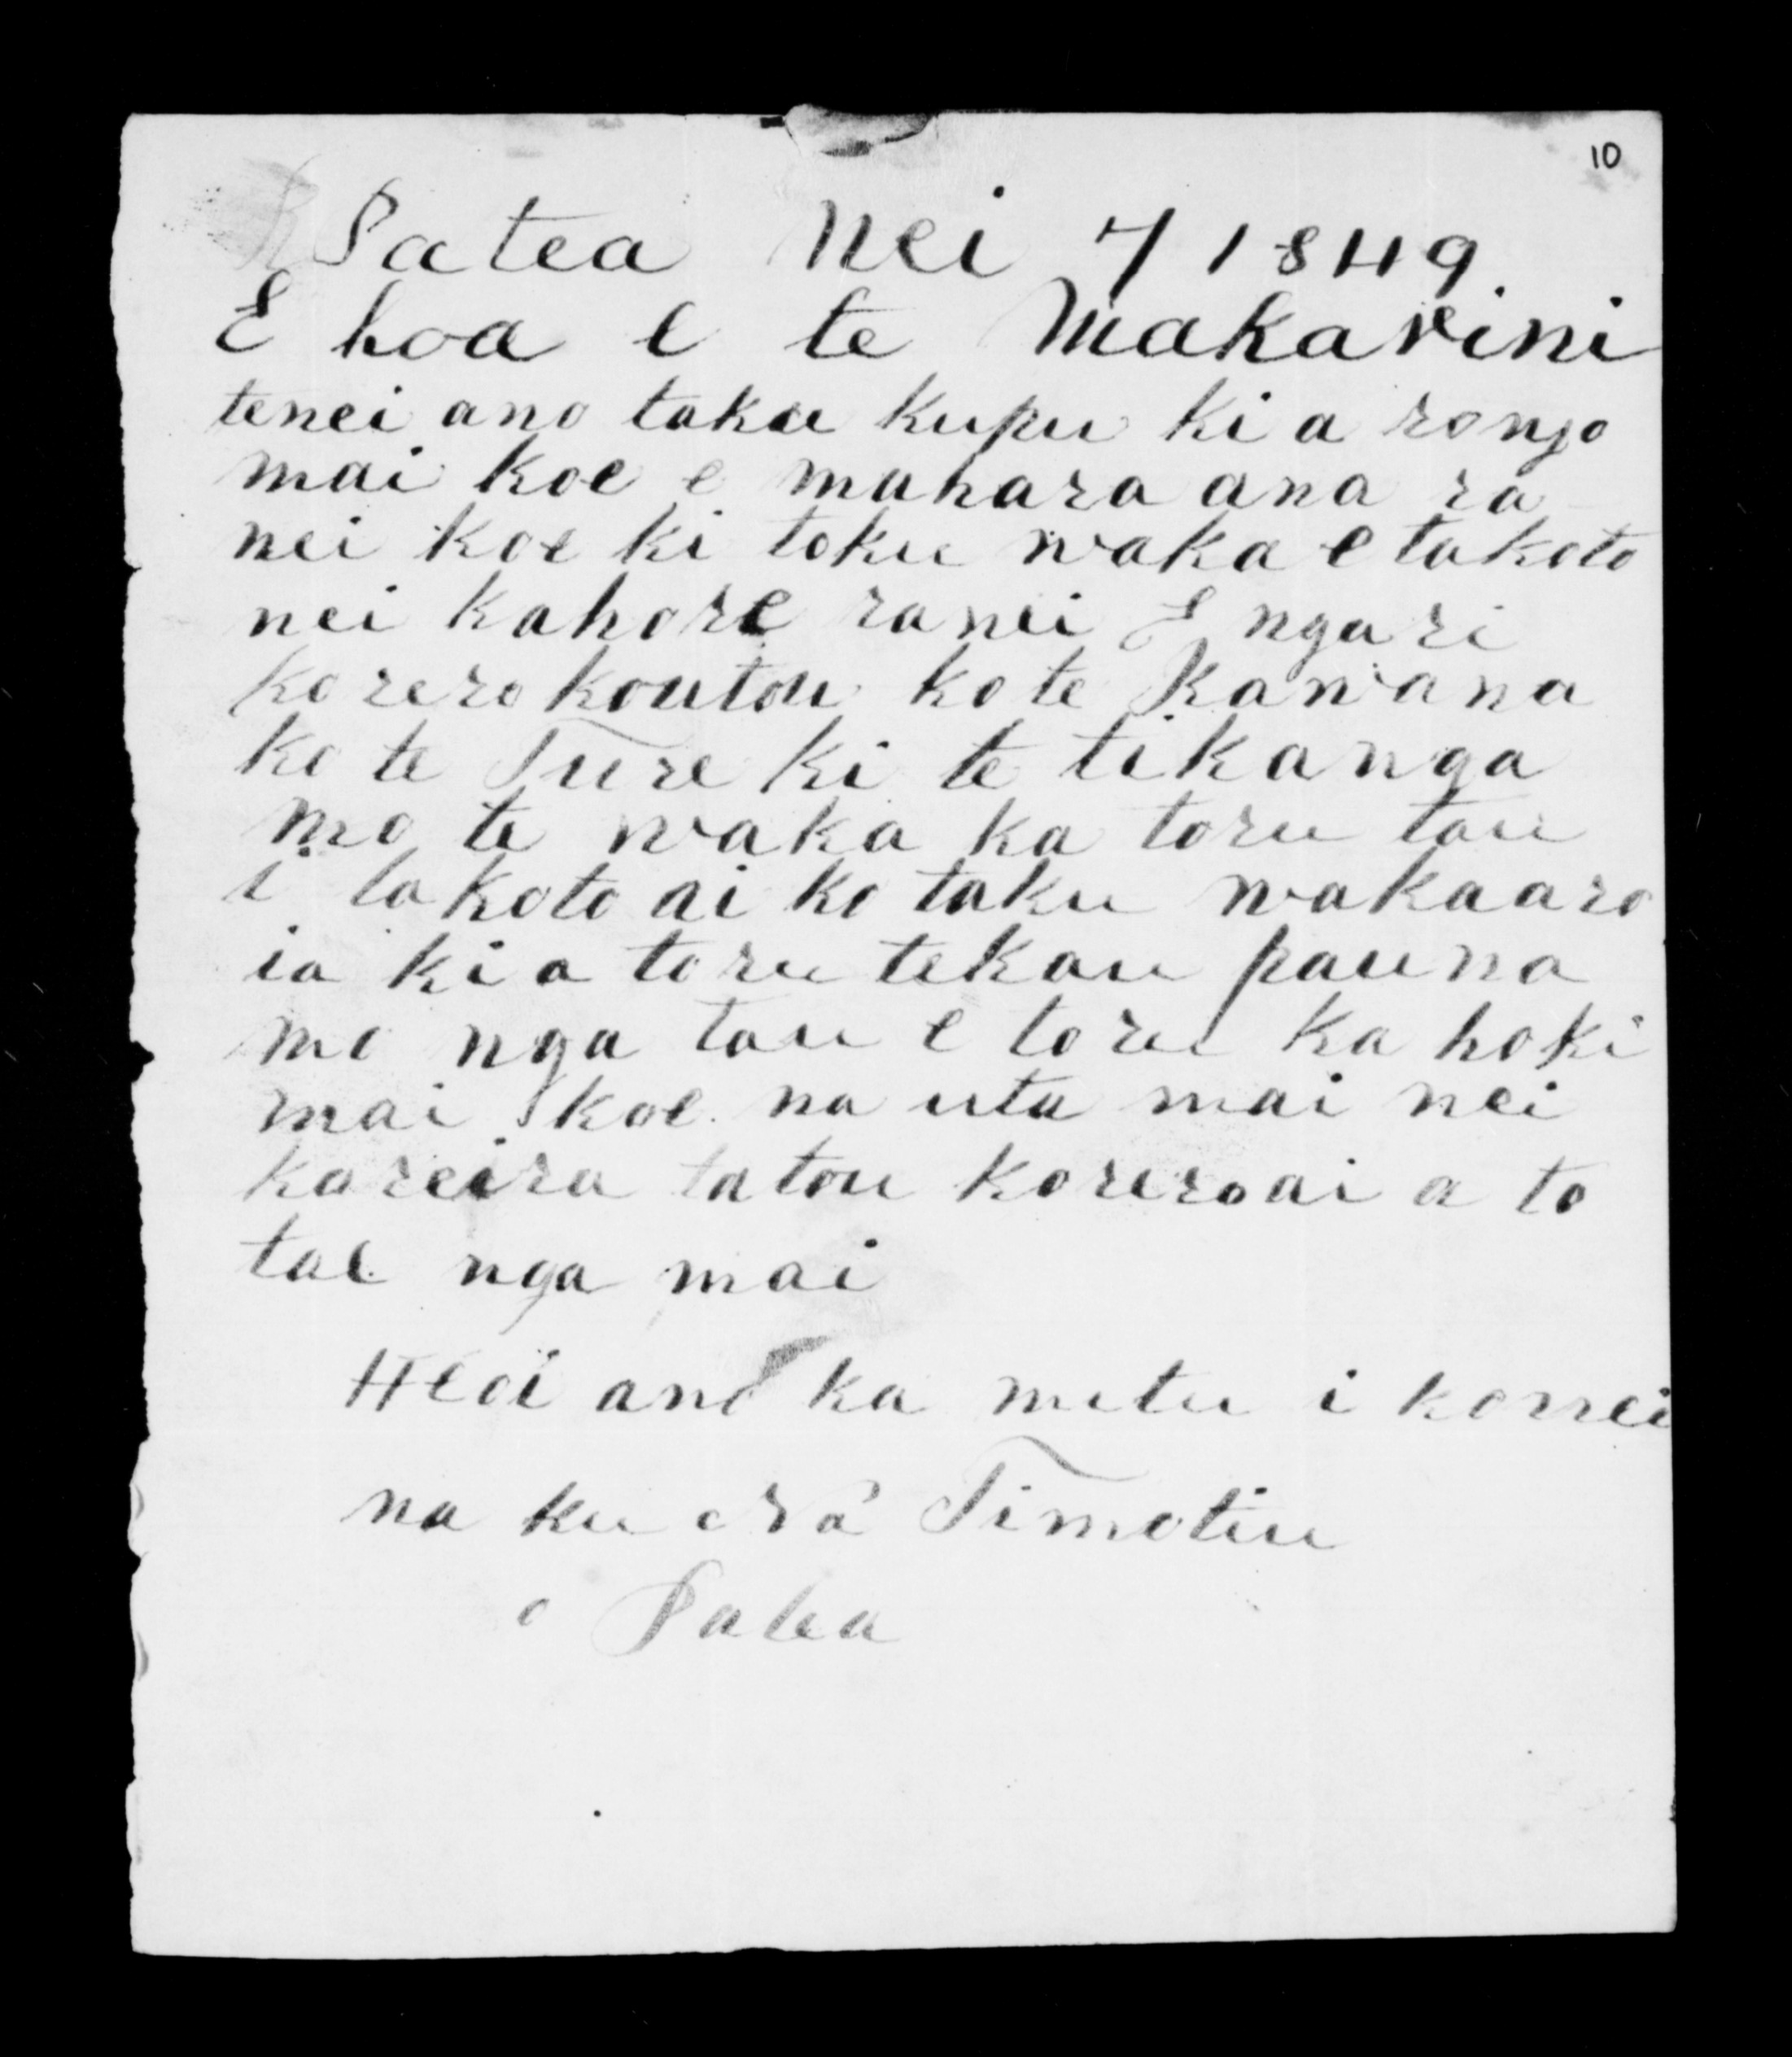 10
Patea Nei 7 1849
E hoa e te Makarini
tenei ano taku kupu kia rongo
mai koe e mahara ana ra
nei koe ki toku waka e takoto
nei kahore ranei E ngari
korero koutou ko te Kawana
ko te Ture ki te tikanga
mo te waka ka toru tau
i takoto ai ko taku wakaaro
ia kia toru tekau pauna
mo nga tau e toru ka hoki
mai koe na uta mai nei
kareira tatou korero ai a to
tae nga mai
Heoi ano ka mutu i konei
na ku era Timotiu
o Patea